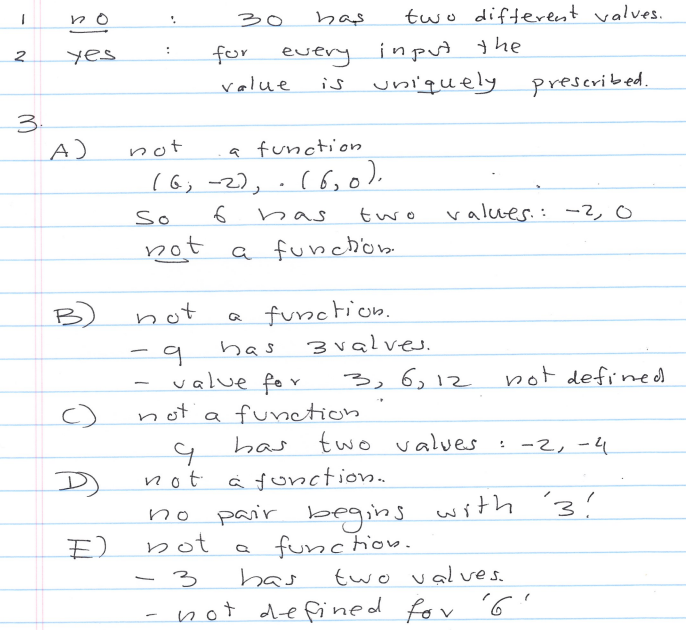 1 no : 30 has two different values.
2 yes : for every input the
value is uniquely prescribed.
3.
A) not a function
(6, -2), (6, 0).
So 6 has two values: -2, 0
not a function.
B) not a function.
- 9 has 3 values.
- value for 3, 6, 12 not defined
C) not a function
9 has two values : -2, -4
D) not a function.
no pair begins with '3'
E) not a function.
- 3 has two values.
- not defined for '6'